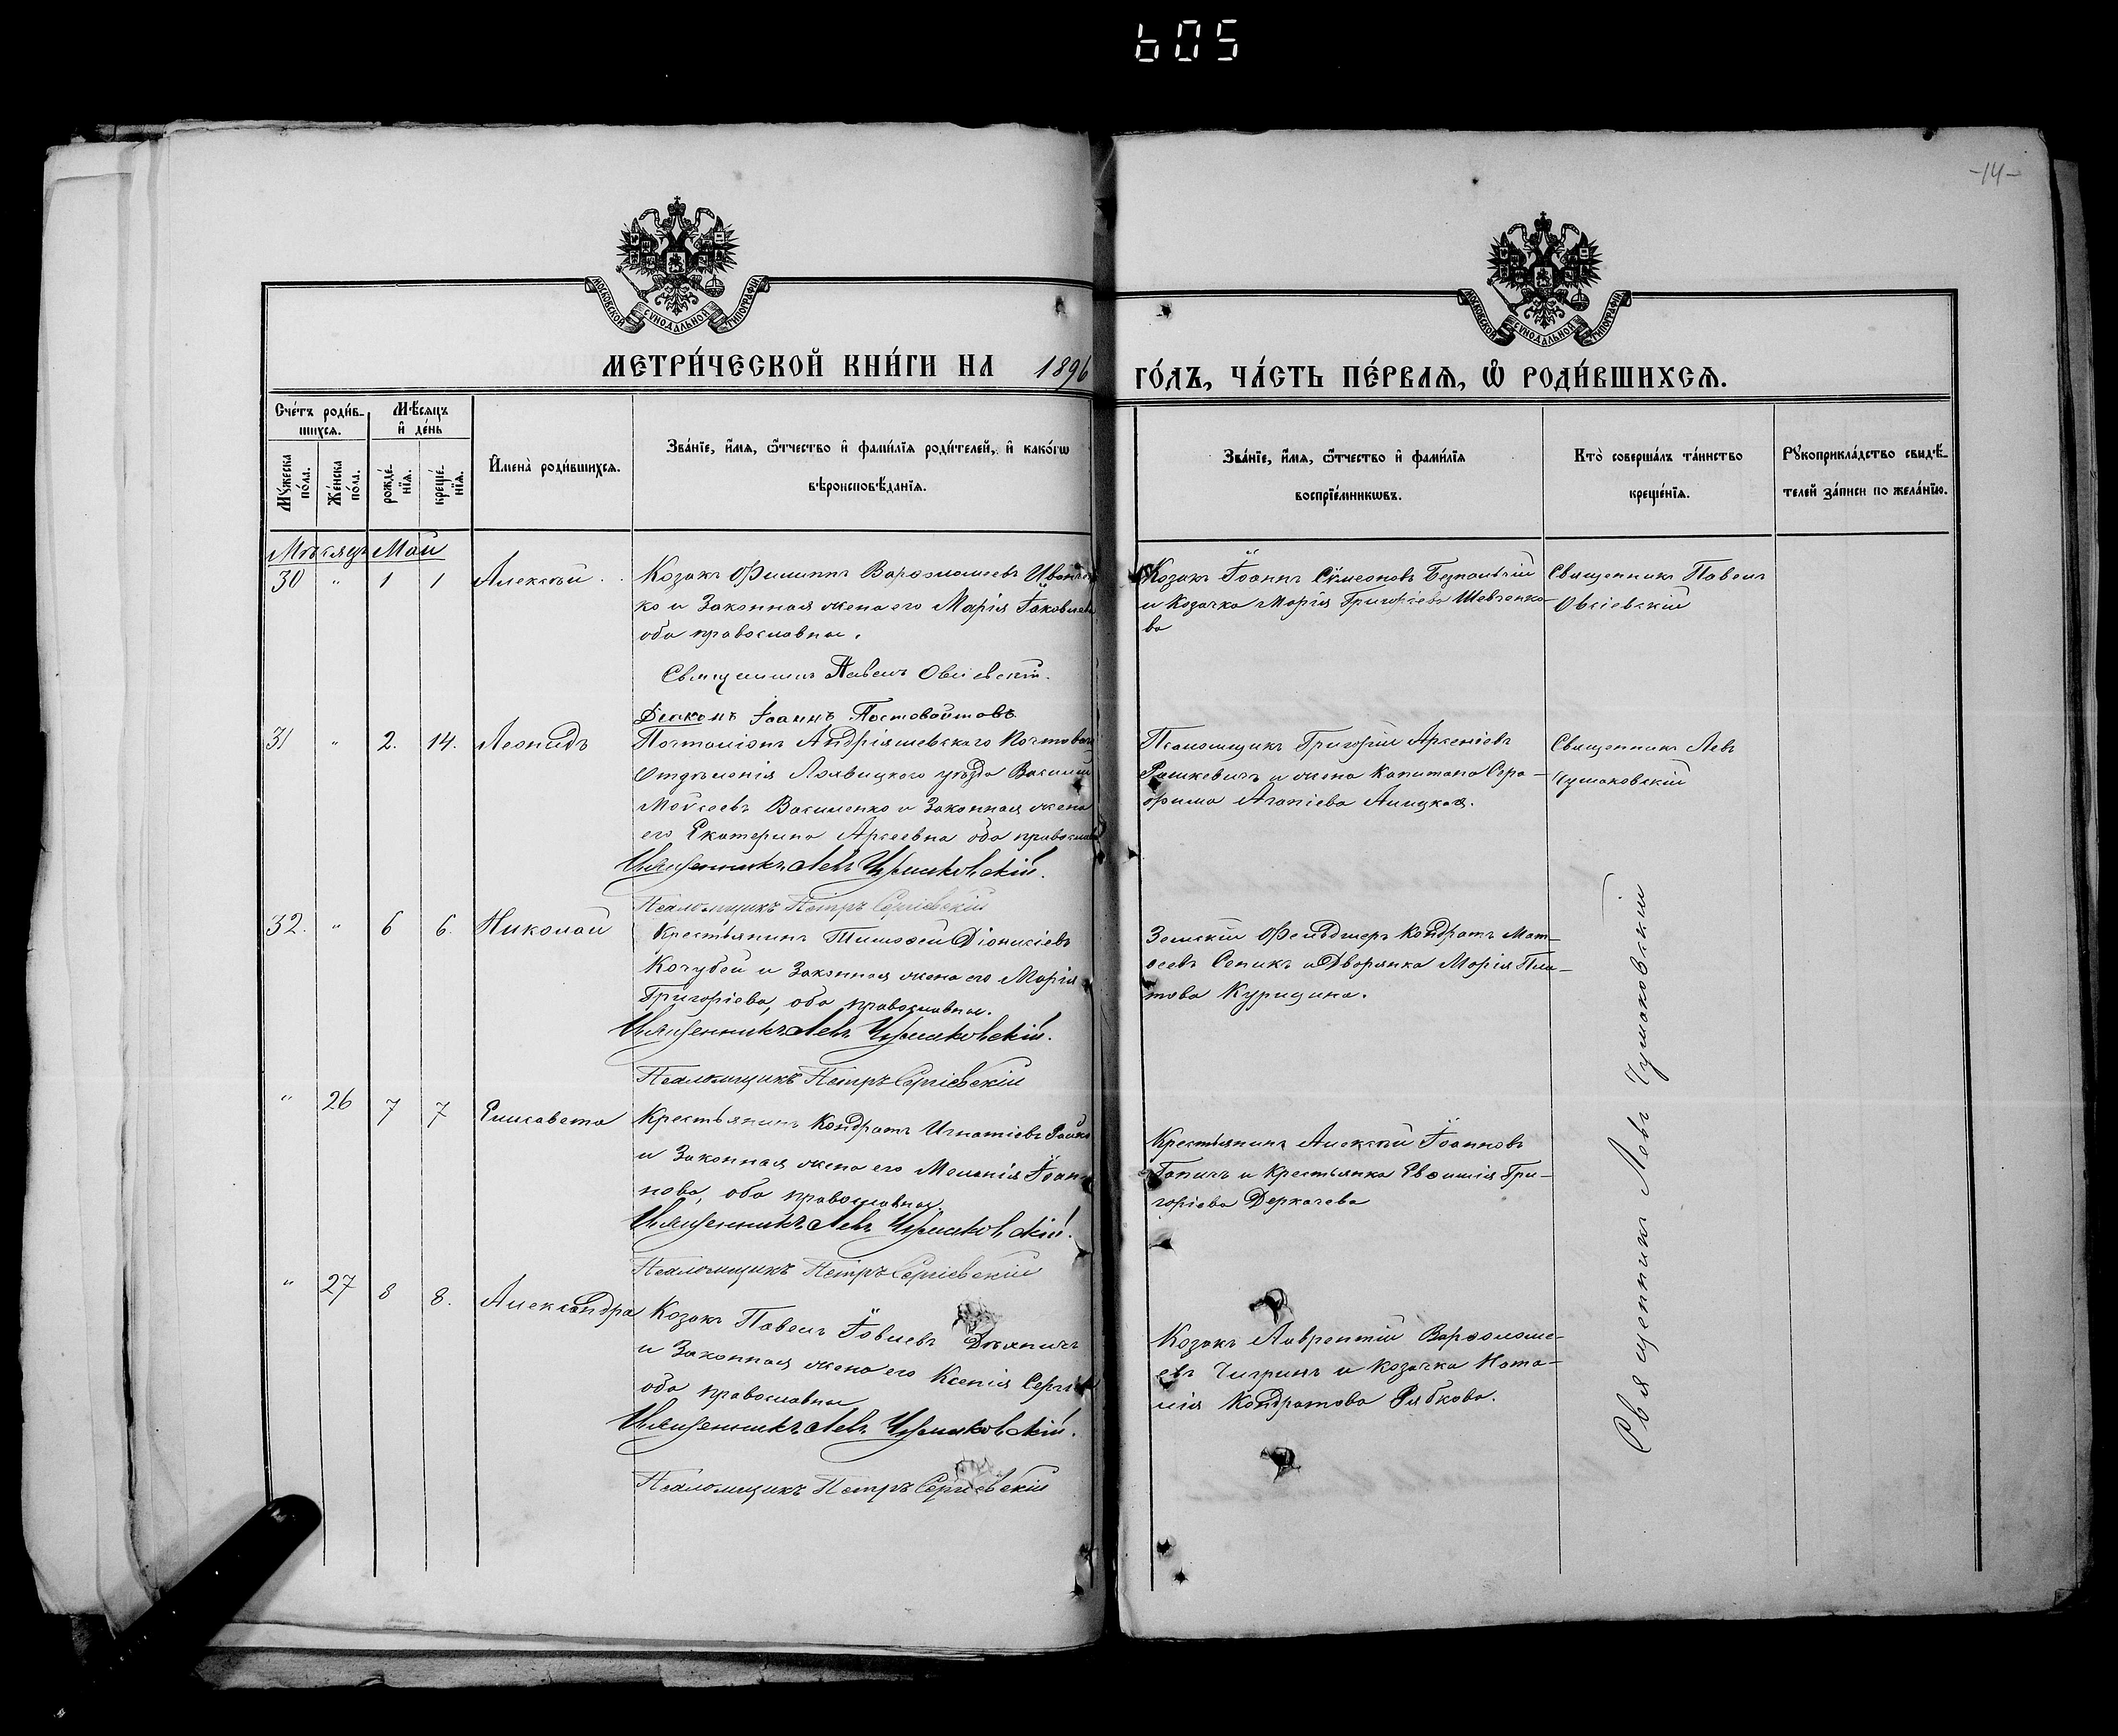 605
-14-
МОСКОВСКОЙ СѴНОДАЛЬНОЙ ТИПОГРАФІИ
МОСКОВСКОЙ СѴНОДАЛЬНОЙ ТИПОГРАФІИ
МЕТРИ́ЧЕСКОЙ КНИ́ГИ НА 1896 ГО́ДЪ, ЧА́СТЬ ПЕ́РВАЯ, Ѡ҆ РОДИ́ВШИХСЯ.
Сче́тъ роди́в-
шихся.
Мѣ́сяцъ
и҆ де́нь
Му́жеска по́ла.
Же́нска по́ла.
рожде́-
нїя.
креще́-
нїя.
И҆мена̀ роди́вшихся.
Зва́нїе, и҆́мя, ѻ҆́тчество и҆ фами́лїя роди́телей, и҆ како́гѡ
вѣроисповѣ́данїя.
Зва́нїе, и҆́мя, ѻ҆́тчество и҆ фами́лїя
воспрїе́мникѡвъ.
Кто̀ соверша́лъ та́инство
креще́нїя.
Рꙋкоприкла́дство свидѣ́-
телей за́писи по жела́нїю.
Мѣсяцъ Май
30 " 1 1 Алексѣй
Козакъ Филиппъ Варѳоломеевъ
ко и Законная жена его Марія Іаковлева
оба православные.
Священникъ Павелъ Овсіевскій.
Діаконъ Іоаннъ Постовойтовъ
Козакъ Іоаннъ Сѷмеоновъ
и Козачка Марія Григоріева Шевченко-
ва
Священникъ Павелъ
Овсіевскій
31 " 2. 14. Леонидъ
Почталіонъ Андріяшевскаго Почтоваго
Отдѣленія Лохвицкого уѣзда Василій
Моѷсеевъ Василенко и Законная жена
его Екатерина оба православн
Священникъ Левъ Чушаковскій.
Псаломщикъ Петръ Сергіевскій
Псаломщикъ Григорій Арсеніевъ
Рашкевичъ и жена Капитана Сера-
фима Агапіева
Священникъ Левъ
Чушаковскій
32. " 6 6. Николай
Крестьянинъ Тимоѳей Діонисіевъ
Кочубей и Законная жена его Марія
Григоріева, оба православные.
Священникъ Левъ Чушаковскій.
Псаломщикъ Петръ Сергіевскій
Земскій Фельдшеръ Кондратъ Мат-
ѳеевъ Сепикъ и Дворянка Марія Пла-
това Курицина.
" 26 7 7 Елисавета
Крестьянинъ Кондратъ Игнатіевъ
и Законная жена его Меланія Іоан-
нова, оба православные.
Священникъ Левъ Чушаковскій.
Псаломщикъ Петръ Сергіевскій
Крестьянинъ Алексѣй Іоанновъ
и Крестьянка Евѳимія Гри-
горіева Деркачева
" 27 8 8. Александра
Козакъ Павелъ Іовлевъ
и Законная жена его Ксенія Сергіева
оба православные
Священникъ Левъ Чушаковскій.
Псаломщикъ Петръ Сергіевскій
Козакъ Лаврентій Варѳоломе-
евъ Чигринъ и козачка Ната-
лія Кондратова Рябкова.
Священникъ Левъ Чушаковскій